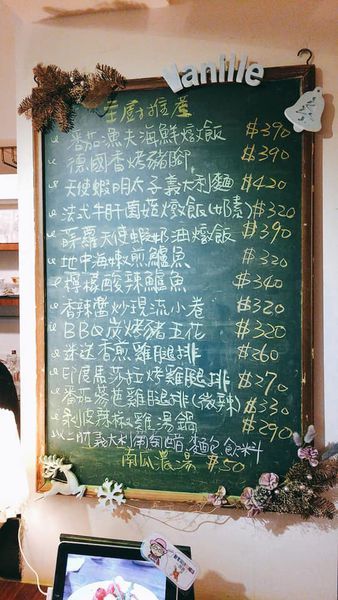 Vanille
主廚推薦
番茄漁夫海鮮燉飯 $390
德國香烤豬腳 $390
天使蝦明太子義大利麵 $420
法式牛肝菌菇燉飯(奶素) $320
蒔蘿天使蝦奶油燉飯 $390
地中海嫩煎鱸魚 $320
檸檬酸辣鱸魚 $340
香辣醬炒現流小卷 $320
BBQ炭烤豬五花 $320
迷迭香煎雞腿排 $260
印尼馬莎拉烤雞腿排 $270
番茄蔘莚雞腿排(微辣) $330
剝皮辣椒雞湯鍋 $290
以上附義大利油醋 麵包 飲料
南瓜濃湯 $50